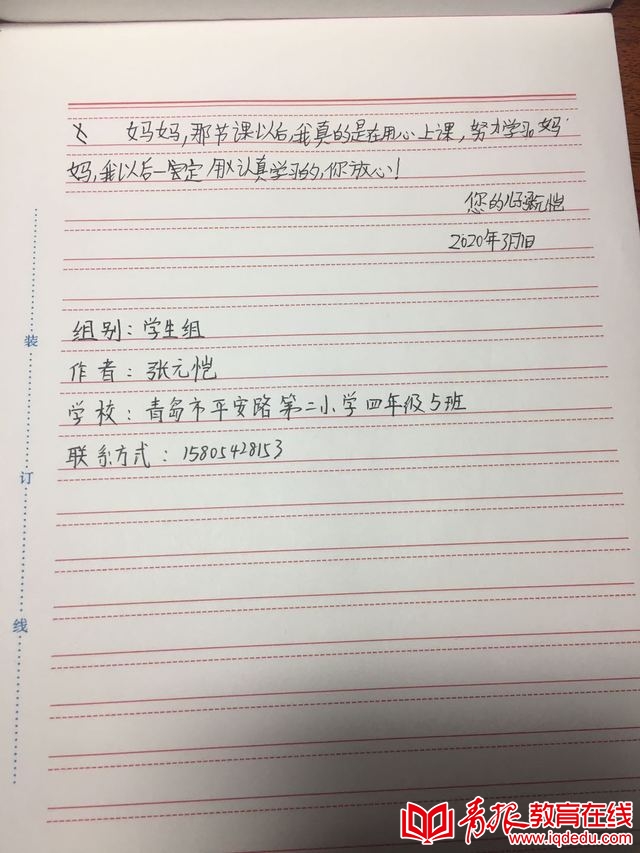 妈妈,那节课以后,我真的是在用心上课,努力学习。妈
妈,我以后一定 认真学习的,你放心!
您的儿子张元恺
2020年3月1日
组别:学生组
作者:张元恺
学校:青岛市平安路第二小学四年级5班
联系方式:15805428153
装
订
线
青报教育在线
www.iqdedu.com